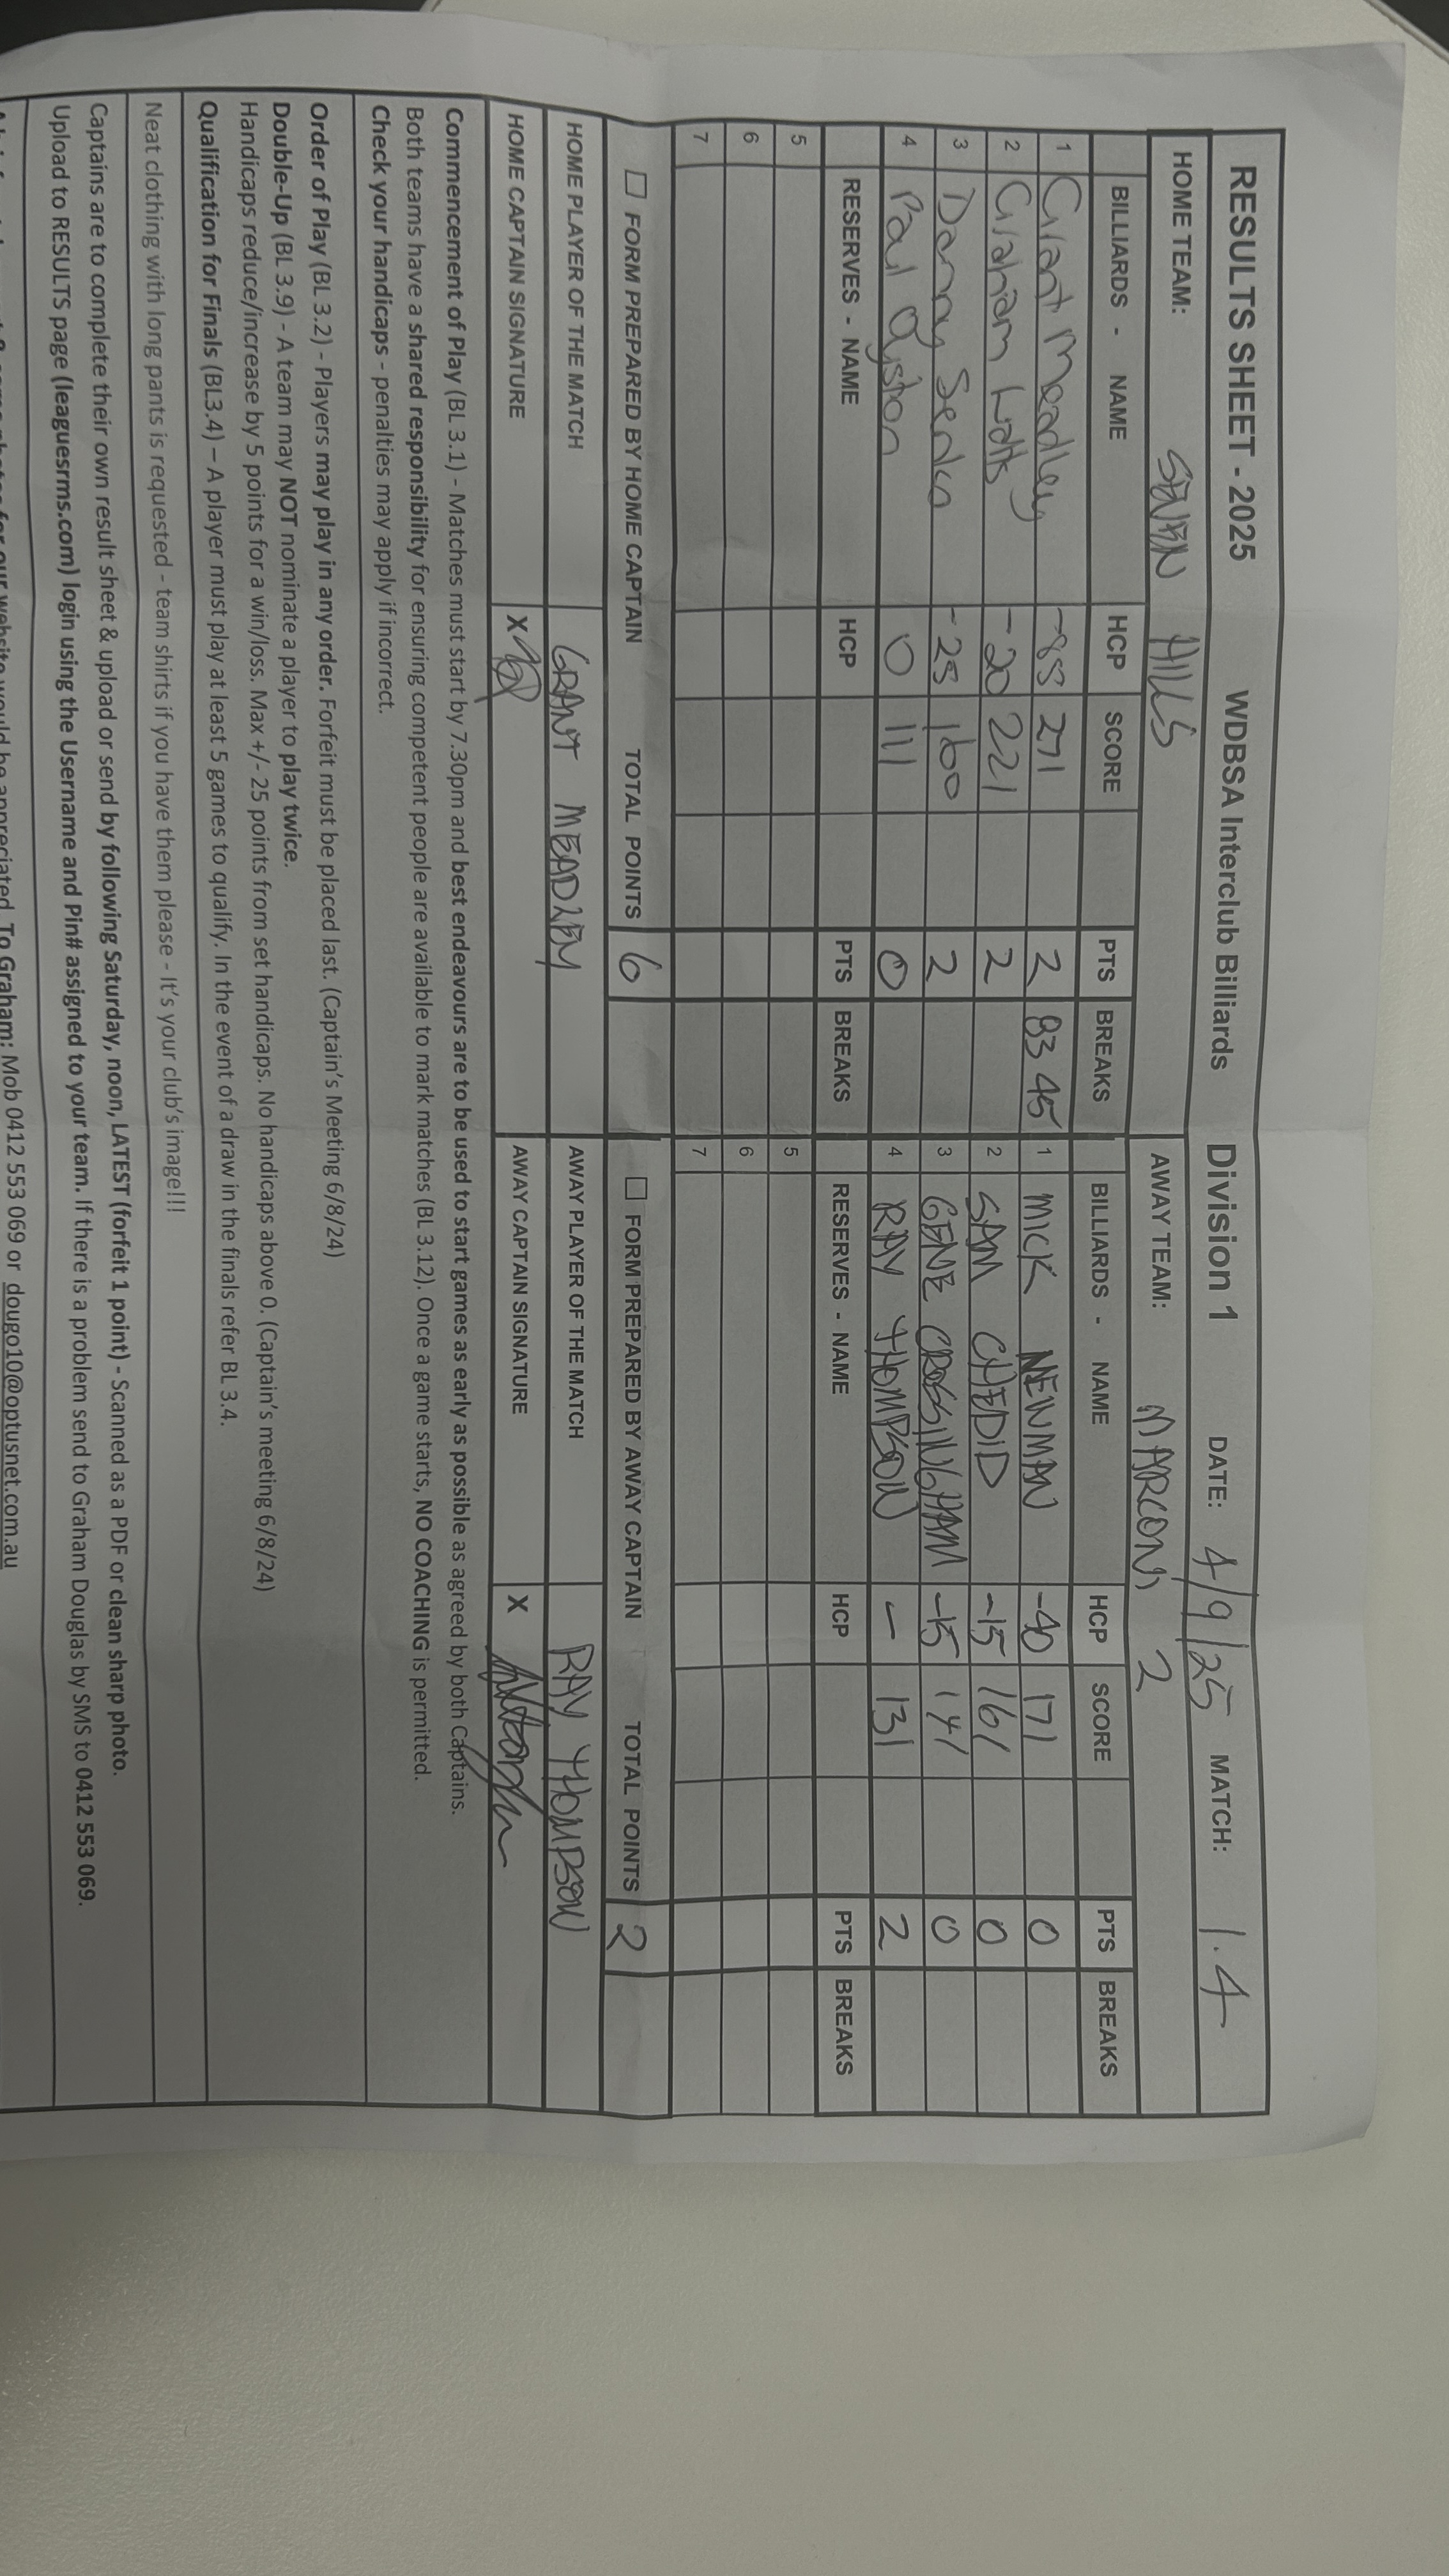 RESULTS SHEET - 2025 WDBSA Interclub Billiards Division 1 DATE: 4/9/25 MATCH: 1.4
HOME TEAM: SEVEN HILLS AWAY TEAM: MARCONI 2
BILLIARDS - NAME HCP SCORE PTS BREAKS BILLIARDS - NAME HCP SCORE PTS BREAKS
1 Grant Meadley -85 271 2 83 45 1 MICK NEWMAN -40 171 0
2 Graham Watts -20 221 2 2 SAM CHEDID -15 161 0
3 Danny Serko -25 160 2 3 GENE CROSSINGHAM -15 141 0
4 Paul Oyston 0 111 0 4 RAY THOMPSON - 131 2
RESERVES - NAME HCP PTS BREAKS RESERVES - NAME HCP SCORE PTS BREAKS
5 5
6 6
7 7
FORM PREPARED BY HOME CAPTAIN TOTAL POINTS 6 FORM PREPARED BY AWAY CAPTAIN TOTAL POINTS 2
HOME PLAYER OF THE MATCH GRANT MEADLEY AWAY PLAYER OF THE MATCH RAY THOMPSON
HOME CAPTAIN SIGNATURE X AWAY CAPTAIN SIGNATURE X
Commencement of Play (BL 3.1) - Matches must start by 7.30pm and best endeavours are to be used to start games as early as possible as agreed by both Captains.
Both teams have a shared responsibility for ensuring competent people are available to mark matches (BL 3.12). Once a game starts, NO COACHING is permitted.
Check your handicaps - penalties may apply if incorrect.
Order of Play (BL 3.2) - Players may play in any order. Forfeit must be placed last. (Captain's Meeting 6/8/24)
Double-Up (BL 3.9) - A team may NOT nominate a player to play twice.
Handicaps reduce/increase by 5 points for a win/loss. Max +/- 25 points from set handicaps. No handicaps above 0. (Captain's meeting 6/8/24)
Qualification for Finals (BL3.4) – A player must play at least 5 games to qualify. In the event of a draw in the finals refer BL 3.4.
Neat clothing with long pants is requested - team shirts if you have them please - It's your club's image!!!
Captains are to complete their own result sheet & upload or send by following Saturday, noon, LATEST (forfeit 1 point) - Scanned as a PDF or clean sharp photo.
Upload to RESULTS page (leaguesrms.com) login using the Username and Pin# assigned to your team. If there is a problem send to Graham Douglas by SMS to 0412 553 069.
our website would be appreciated. To Graham: Mob 0412 553 069 or dougo10@optusnet.com.au